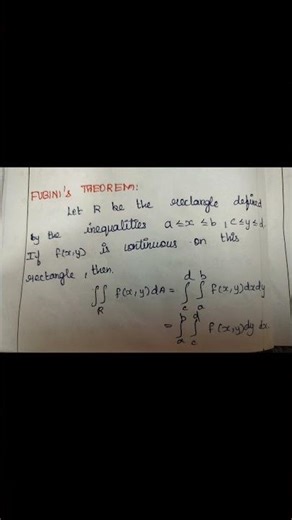 FUBINI's THEOREM:
Let R be the rectangle defined
by the inequalities a≤x≤b, c≤y≤d.
If f(x,y) is continuous on this
rectangle, then.
∬_R f(x,y)dA = ∫_c^d ∫_a^b f(x,y)dxdy
= ∫_a^b ∫_c^d f(x,y)dy dx.